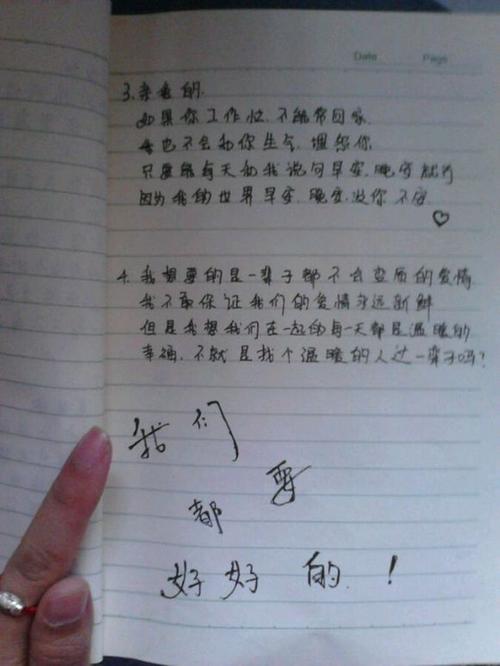 Date Page
3. 亲爱的.
如果你工作忙. 不能常回家.
我也不会和你生气. 埋怨你
只要能每天和我说句早安. 晚安就行
因为我的世界早安. 晚安. 没你不安
4. 我想要的是一辈子都不会变质的爱情
我不敢保证我们的爱情永远新鲜
但是我想我们在一起的每一天都是温暖的
幸福. 不就是找个温暖的人过一辈子吗?
我们
要
都
好好的. !